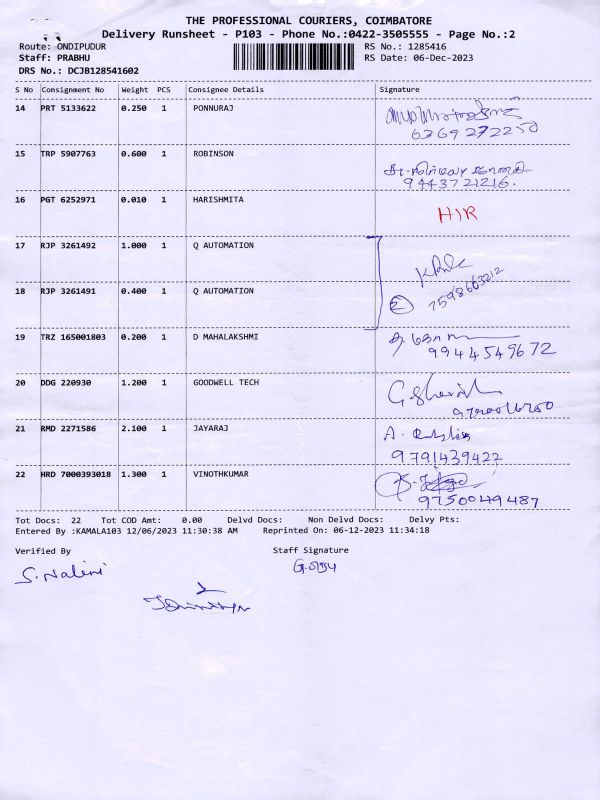 THE PROFESSIONAL COURIERS, COIMBATORE
Delivery Runsheet - P103 - Phone No.:0422-3505555 - Page No.:2
Route: ONDIPUDUR
RS No.: 1285416
Staff: PRABHU
RS Date: 06-Dec-2023
DRS No.: DCJB128541602
S No Consignment No Weight PCS Consignee Details Signature
14 PRT 5133622 0.250 1 PONNURAJ
6369272250
15 TRP 5907763 0.600 1 ROBINSON
9443721216.
16 PGT 6252971 0.010 1 HARISHMITA H/R
17 RJP 3261492 1.000 1 Q AUTOMATION
18 RJP 3261491 0.400 1 Q AUTOMATION
2 7598663212
19 TRZ 165001803 0.200 1 D MAHALAKSHMI
9944549672
20 DDG 220930 1.200 1 GOODWELL TECH
21 RMD 2271586 2.100 1 JAYARAJ
9791439422
22 HRD 7000393018 1.300 1 VINOTHKUMAR
9750049487
Tot Docs: 22 Tot COD Amt: 0.00 Delvd Docs: Non Delvd Docs: Delvy Pts:
Entered By :KAMALA103 12/06/2023 11:30:38 AM Reprinted On: 06-12-2023 11:34:18
Verified By Staff Signature
S. Nalini